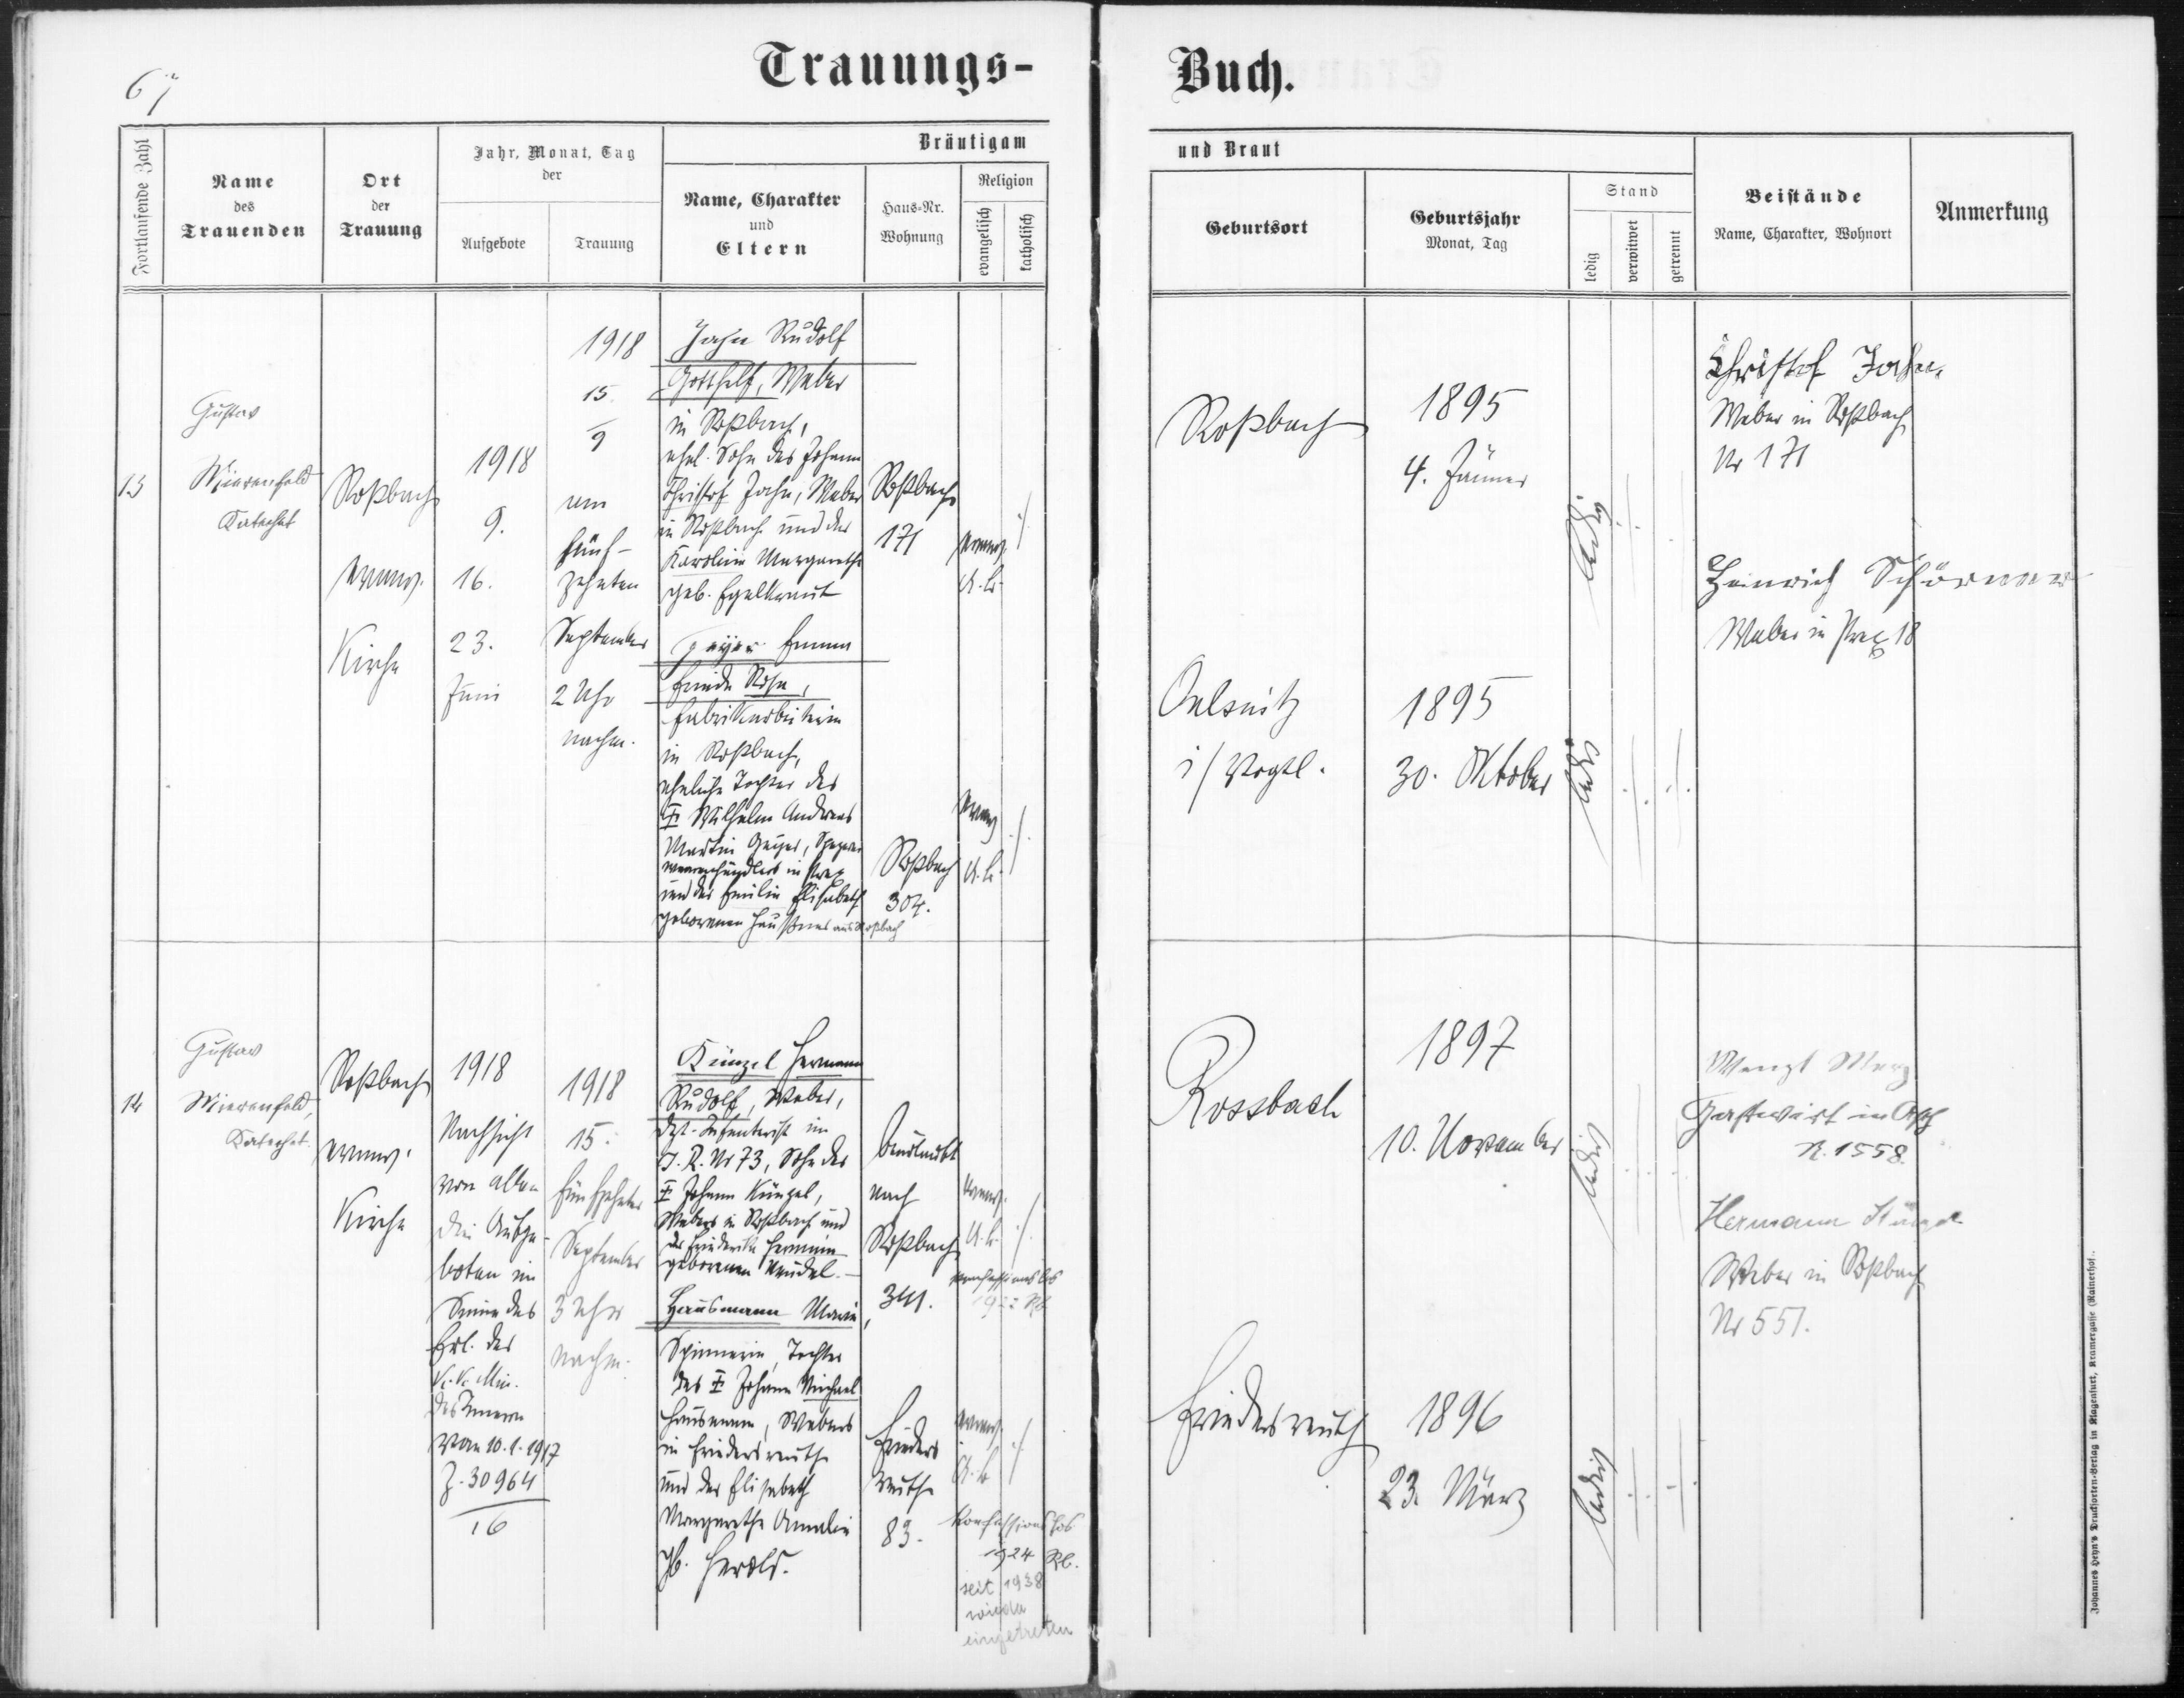 67
Trauungs-
Buch.
Fortlaufende Zahl
Name
des
Trauenden
Ort
der
Trauung
Jahr, Monat, Tag
der
Aufgebote
Trauung
Bräutigam
Name, Charakter
und
Eltern
Haus-Nr.
Wohnung
Religion
evangelisch
katholisch
und Braut
Geburtsort
Geburtsjahr
Monat, Tag
Stand
ledig
verwitwet
getrennt
Beistände
Name, Charakter, Wohnort
Anmerkung
13
Gustav
Mierenfeld
Katechet
Roßbach
evang.
Kirche
1918
9.
16.
23.
Juni
1918
15.
9
am
fünf-
zehnten
September
2 Uhr
nachm.
Jahn Rudolf
Gotthelf, Weber
in Roßbach,
ehel. Sohn des Johann
Christof Jahn, Weber
in Roßbach und der
Karolin Margarethe
geb. Egelkraut
Roßbach
171
evang.
A. B.
Geyer Emma
Frieda Rosa,
Fabrikarbeiterin
in Roßbach,
eheliche Tochter des
Wilhelm Andreas
Martin Geyer,
warenhändlers in
und der Emilie Elisabeth
geborenen aus Roßbach
Roßbach
304.
evang.
A. B.
Roßbach
1895
4. Jänner
ledig
Christof Jahn,
Weber in Roßbach
Nr 171
Heinrich Schörner
Weber in Prex 18
Oelsnitz
i/Vogtl.
1895
30. Oktober
ledig
14
Gustav
Mierenfeld,
Katechet.
Roßbach
evang.
Kirche
1918
Nachsicht
von allen
drei Aufge-
boten im
Sinne des
Erl. des
k. k. Min.
des Innern
vom 10.1.1917
Z. 30964
16
1918
15.
fünfzehnten
September
3 Uhr
nachm.
Künzel Hermann
Rudolf, Weber,
dzt. Infanterist im
I. R. Nr 73, Sohn des
Johann Künzel,
Webers in Roßbach und
der Friederike Hermine
geborenen
beurlaubt
nach
Roßbach
341.
evang.
A. B.
konfessionslos
Hausmann Maria,
Spinnerin, Tochter
des Johann Michael
Hausmann, Webers
in Friedersreuth
und der Elisabeth
Margarethe Amalie
gb. Herold.
Frieders
reuth
83.
evang.
A. B.
konfessionslos
1924 Rb.
seit 1938
wieder
eingetreten
Rossbach
1897
10. November
ledig
Wenzl Merz
Gastwirt in Asch
N. 1558.
Hermann
Weber in Roßbach
Nr 551.
Friedersreuth
1896
23. März
ledig
Johannes Heyn's Drucksorten-Verlag in Klagenfurt, Kramergasse (Rainerhof).